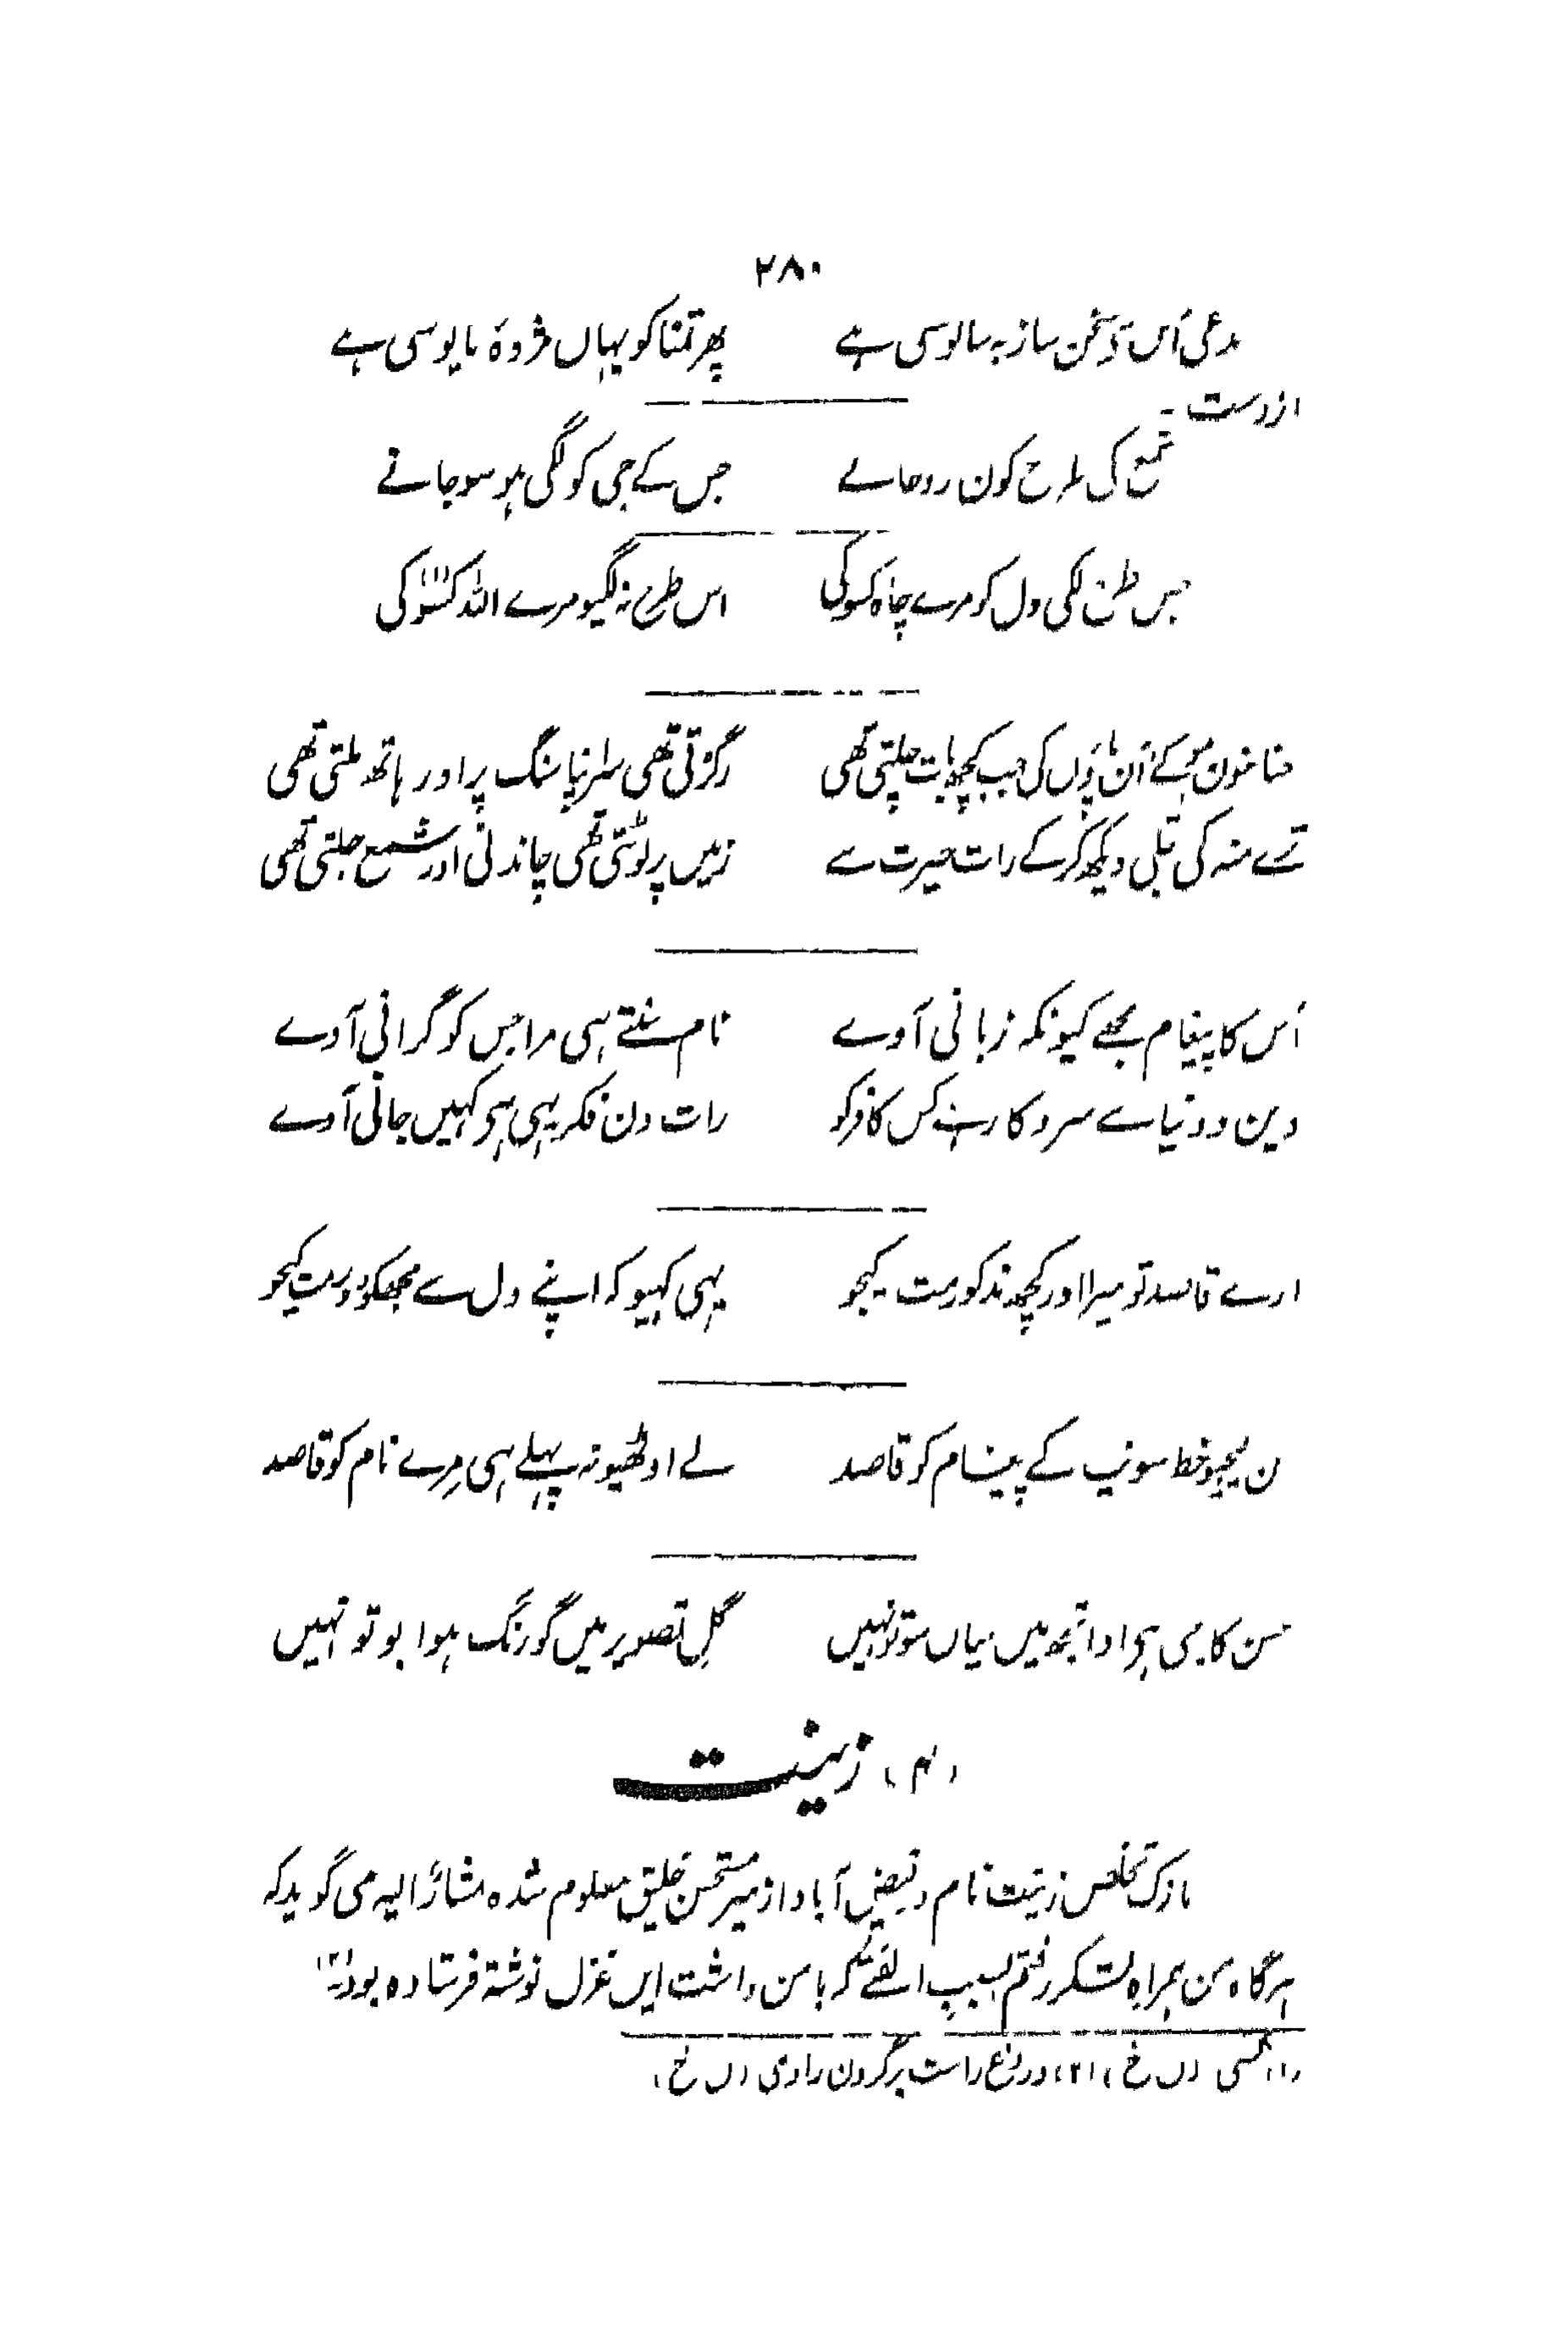 ۲۸۰
مدعی اُس تو سخن ساز بہ سالوسی ہے پھر تمنا کو یہاں مژدۂ مایوسی ہے
از دست -
شمع کی طرح کون رو جانے جس کے جی کو لگی ہو سو جانے
جس طرح لگی دل کو مرے چاہ کسو کی اس طرح نہ لگیو مرے اللہ کسو(۱) کی
حنا خون ہو کے اُن پاؤں کی جب کچھ بات چلتی تھی رگڑتی تھی سراپنا سنگ پر اور ہاتھ ملتی تھی
ترے منہ کی تجلی دیکھ کر کے رات حیرت سے زمیں پر لوٹتی تھی چاندنی اور شمع جلتی تھی
اُس کا پیغام مجھے کیونکہ زبانی آوے نام سنتے ہی مرا جس کو گرانی آوے
دین و دنیا سے سروکار ہے کس کافر کو رات دن فکر یہی ہو کہیں جانی آوے
ارے قاصد تو میرا اور کچھ مذکور مت کیجو یہی کہیو کہ اپنے دل سے مجھکو دور مت کیجو
ن لیجیو خط سونپ کے پیغام کو قاصد لے اوٹھیو نہ پہلے ہی مرے نام کو قاصد
حسن کا ہی ہو ادا تجھ میں میاں سو تو نہیں گلِ تصویر میں گو رنگ ہوا بو تو نہیں
(۴) زینت
نازک تخلص زینت نام در فیض آباد از میر مستحسن خلیق معلوم شدہ مشارٌ الیہ می گوید کہ
ہرگاہ من ہمراہ لشکر رفتم بسبب الفتے کہ با من داشت ایں غزل نوشتہ فرستادہ بود(۲)
(۱) کسی (ن خ) (۲) دروغ راست برگردن راوی (ن خ)